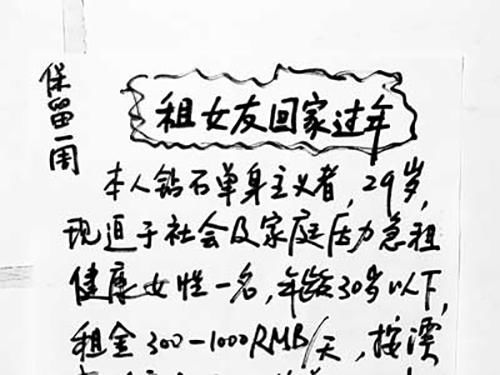 保留一周
租女友回家过年
本人钻石单身主义者，29岁，
现迫于社会及家庭压力急租
健康女性一名，年龄30岁以下，
租金300-1000RMB/天，按